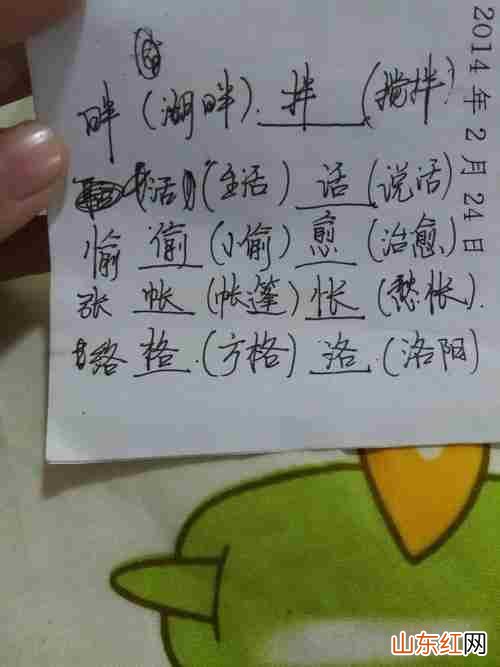 2014年2月24日
畔 (湖畔). 拌 (搅拌)
(活) (生活) 话 (说话)
愉 偷 (小偷) 愈 (治愈)
张 帐 (帐蓬) 怅 (愁怅).
络 格. (方格) 洛. (洛阳)
山东红网